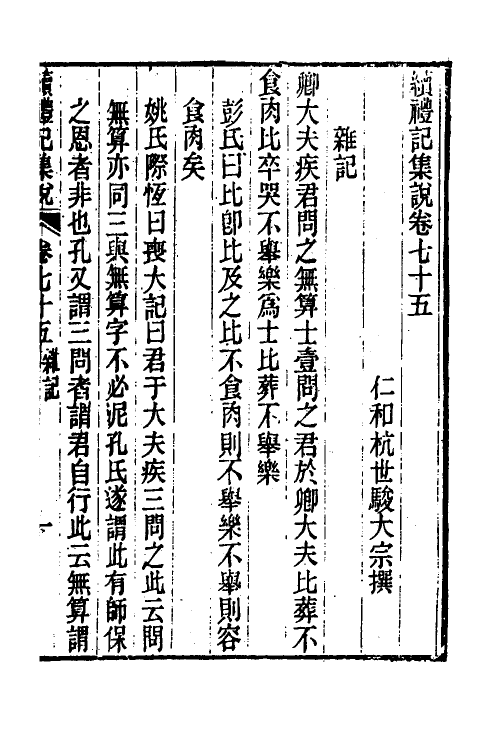 續禮記集說卷七十五
仁和杭世駿大宗撰
雜記
卿大夫疾君問之無算士壹問之君於卿大夫比葬不
食肉比卒哭不舉樂爲士比葬不舉樂
彭氏曰比卽比及之比不食肉則不舉樂不舉則容
食肉矣
姚氏際恆曰喪大記曰君于大夫疾三問之此云問
無算亦同三與無算字不必泥孔氏遂謂此有師保
之恩者非也孔又謂三問者謂君自行此云無算謂
續禮記集說 卷七十五 雜記 一